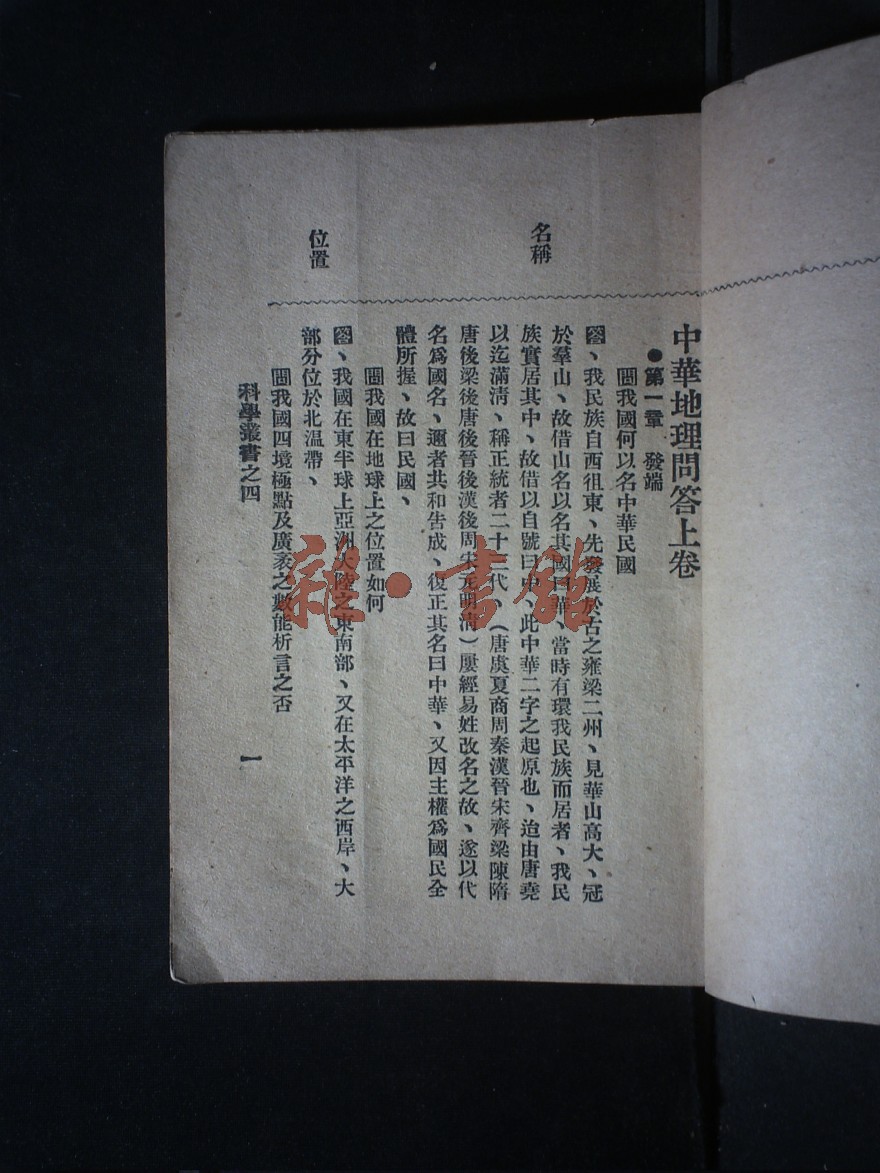 中華地理問答上卷
●第一章　發端
名稱
問我國何以名中華民國
答、我民族自西徂東、先發展於古之雍梁二州、見華山高大、冠
於羣山、故借山名以名其國曰華、當時有環我民族而居者、我民
族實居其中、故借以自號曰中、此中華二字之起原也、迨由唐堯
以迄滿淸、稱正統者二十二代、（唐虞夏商周秦漢晉宋齊梁陳隋
唐後梁後唐後晉後漢後周宋元明淸）屢經易姓改名之故、遂以代
名爲國名、邇者共和告成、復正其名曰中華、又因主權爲國民全
體所握、故曰民國、
位置
問我國在地球上之位置如何
答、我國在東半球上亞洲大陸之東南部、又在太平洋之西岸、大
部分位於北溫帶、
問我國四境極點及廣袤之數能析言之否
科學叢書之四
一
雜·書館